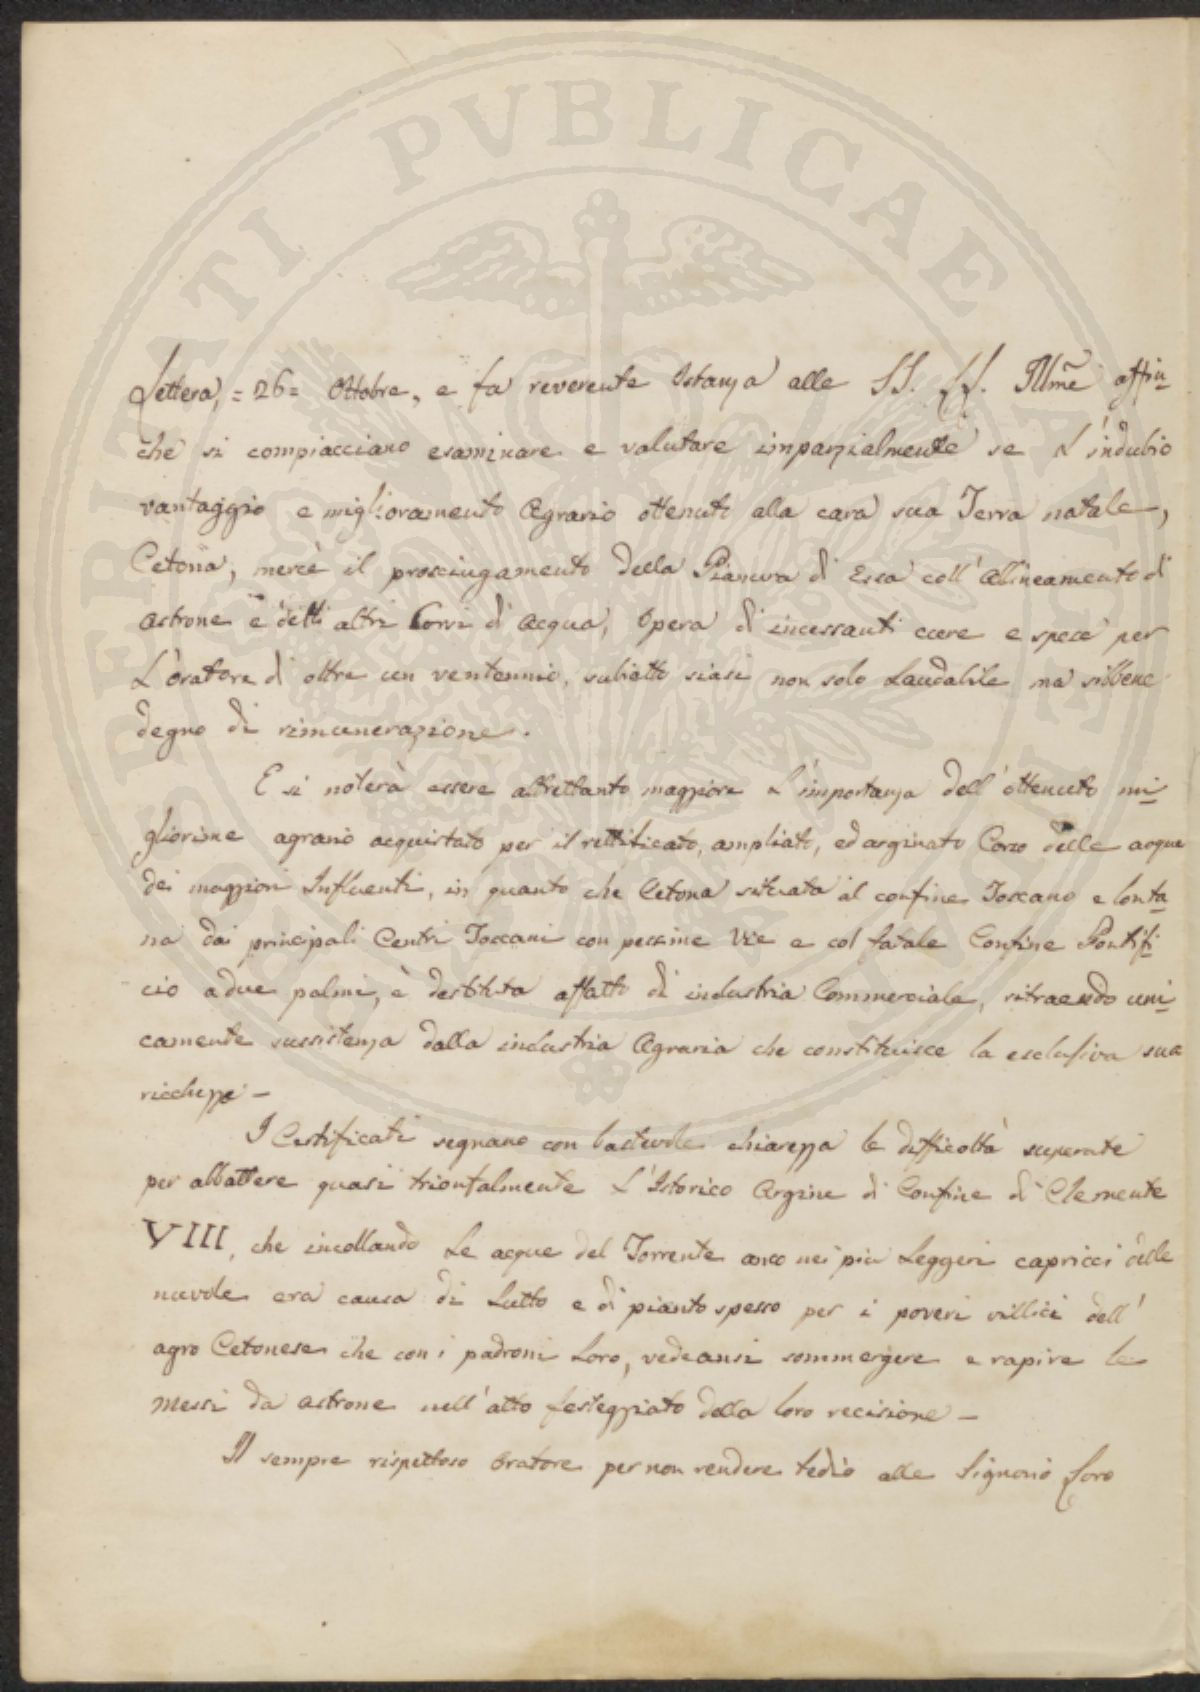 PROSPERITATI PVBLICAE AVGENDAE
Lettera, = 26 = Ottobre, e fa reverente Istanza alle SS. LL. Illm̃e affin-
chè si compiacciano esaminare e valutare imparzialmente se L'indubio
vantaggio e miglioramento Agrario ottenuto alla cara sua Terra natale,
Cetona, mercè il prosciugamento della Pianura di Essa coll'Allineamento di
Astrone e detti altri Corsi di Acqua, Opera di incessanti cure e spese per
L'Oratore di oltre un ventennio, subietto siasi non solo Laudabile ma sibbene
degno di rimunerazione.
E si noterà essere altrettanto maggiore L'importanza dell'ottenuto mi-
gliorime agrario acquistato per il rettificato, ampliato, ed arginato Corso delle acque
dei maggiori Influenti, in quanto che Cetona situata al confine Toscano e lonta-
na dai principali Centri Toscani con pessime Vie e col fatale Confine Pontifi-
cio a due palmi, è destituta affatto di industria Commerciale, ritraendo uni-
camente sussistenza dalla industria Agraria che constituisce la esclusiva sua
ricchezza —
I Certificati segnano con bastevole chiarezza le difficoltà superate
per abbattere quasi trionfalmente L'Istorico Argine di Confine di Clemente
VIII, che incollando Le acque del Torrente anco nei più Leggeri capricci delle
nuvole era causa di Lutto e di pianto spesso per i poveri villici dell'
agro Cetonese che con i padroni Loro, vedeansi sommergere e rapire le
Messi da Astrone nell'atto festeggiato della loro recisione —
Il sempre rispettoso Oratore per non rendere tedio alle Signorie Loro